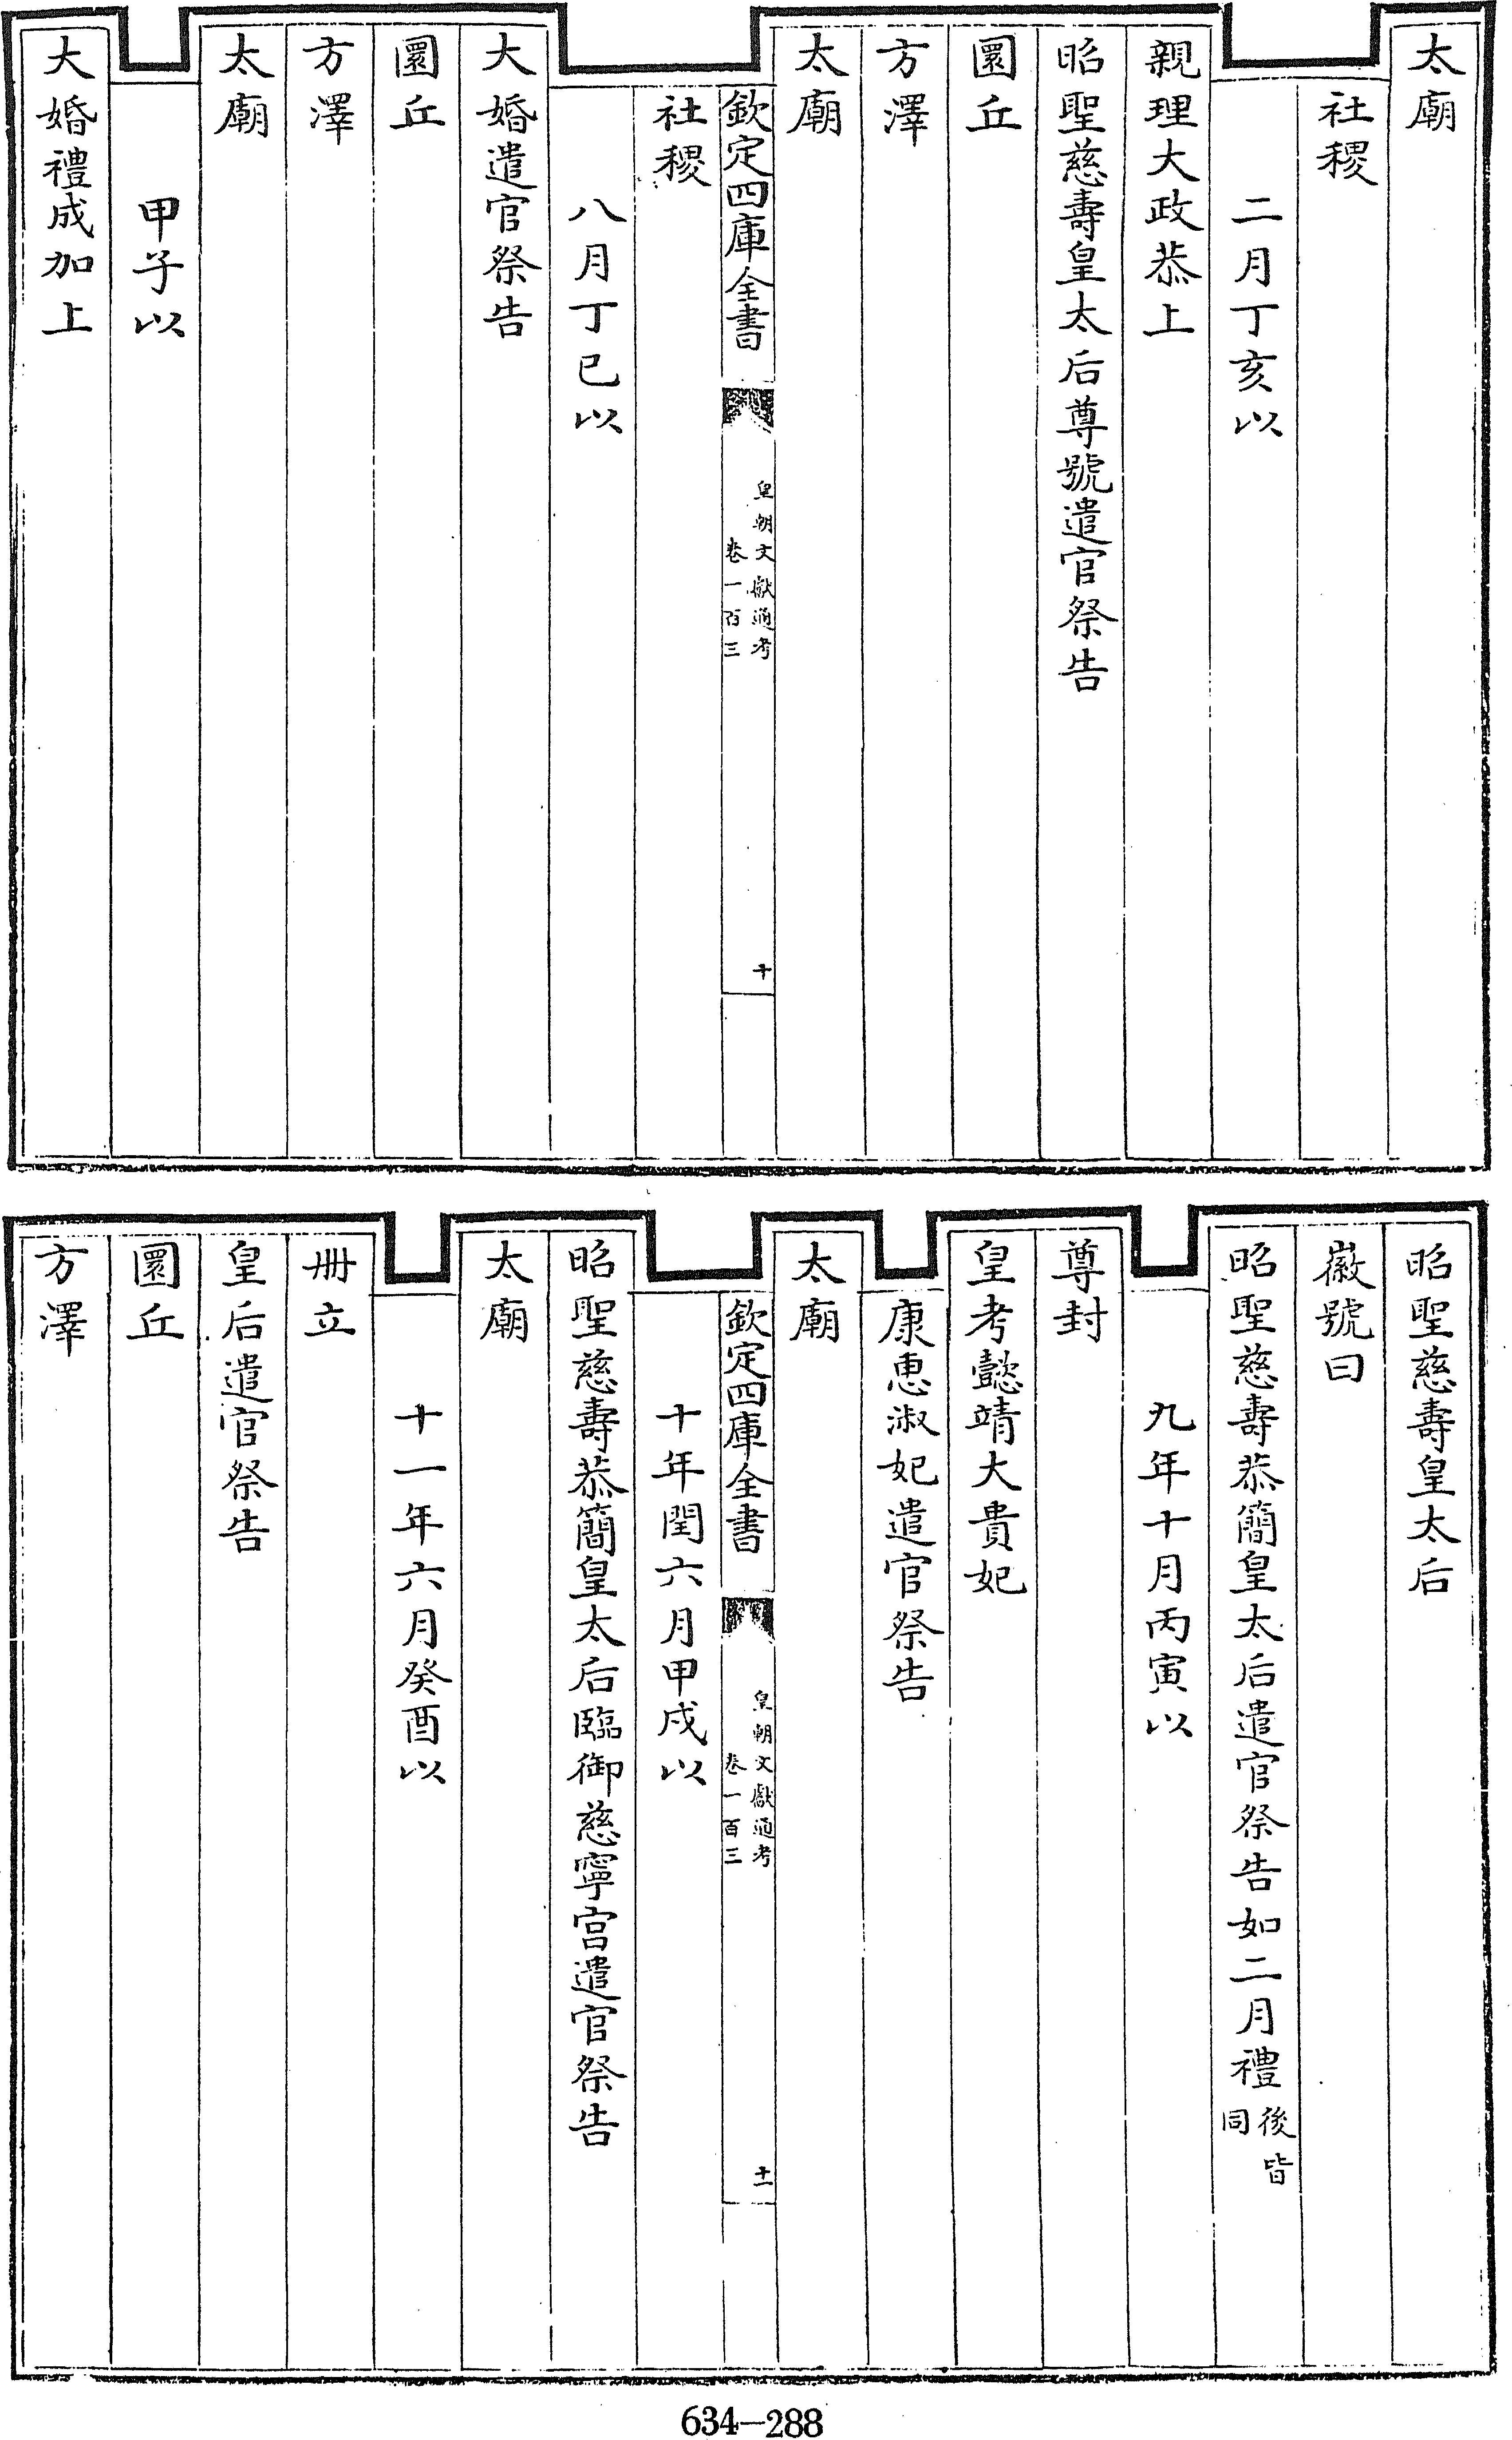 太廟
社稷
二月丁亥以
親理大政恭上
昭聖慈壽皇太后尊號遣官祭告
圜丘
方澤
太廟
欽定四庫全書
皇朝文獻通考
卷一百三
十
社稷
八月丁巳以
大婚遣官祭告
圜丘
方澤
太廟
甲子以
大婚禮成加上
昭聖慈壽皇太后
徽號曰
昭聖慈壽恭簡皇太后遣官祭告如二月禮後皆同
九年十月丙寅以
尊封
皇考懿靖大貴妃
康惠淑妃遣官祭告
太廟
欽定四庫全書
皇朝文獻通考
卷一百三
十一
十年閏六月甲戌以
昭聖慈壽恭簡皇太后臨御慈寧宮遣官祭告
太廟
十一年六月癸酉以
冊立
皇后遣官祭告
圜丘
方澤
634-288